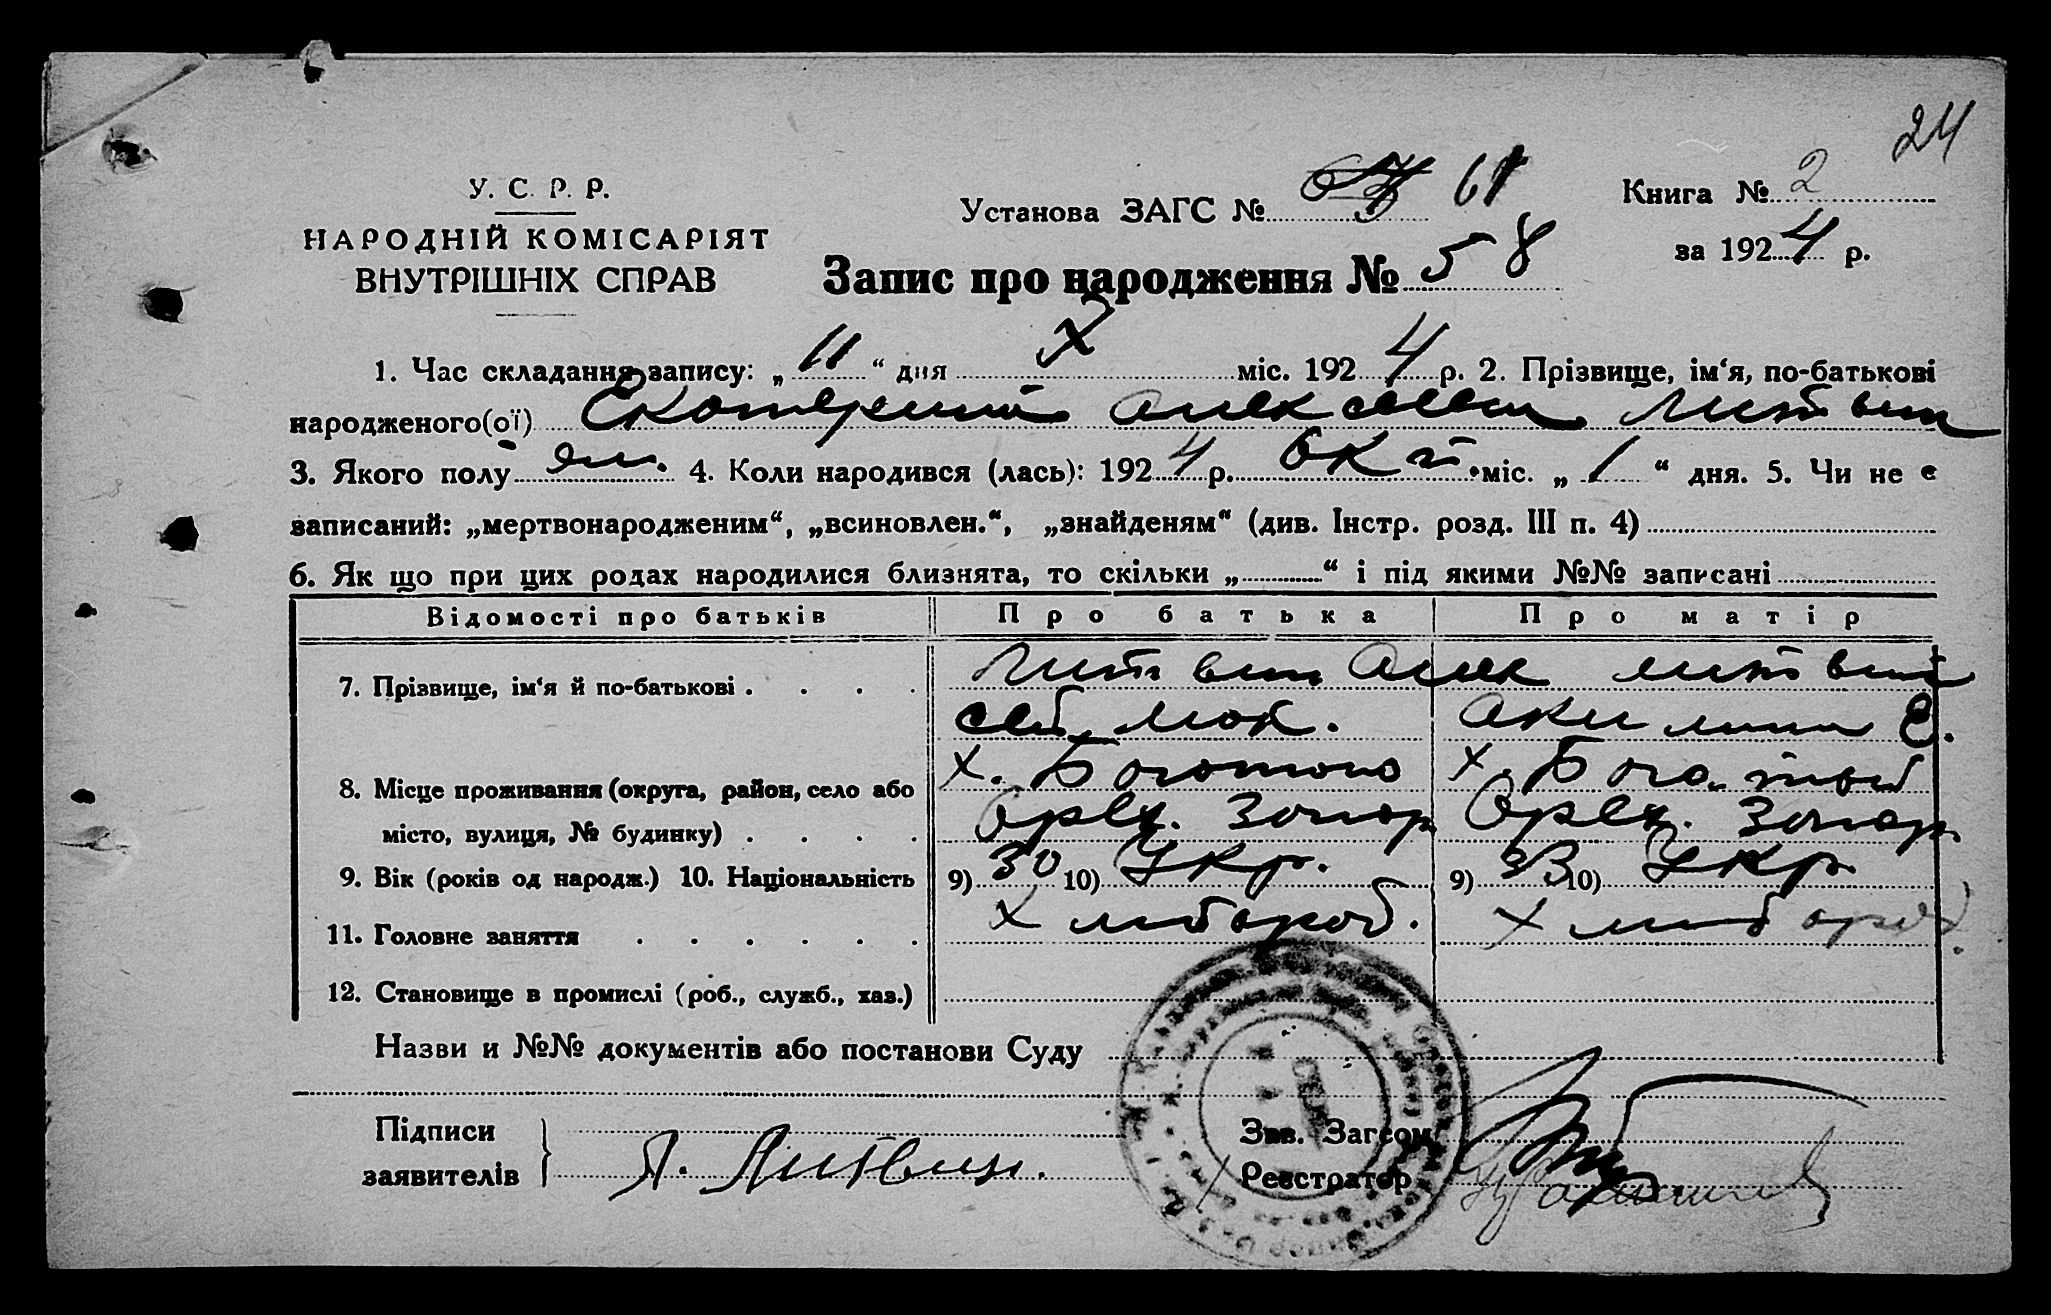 24
У. С. Р. Р.
НАРОДНІЙ КОМІСАРІЯТ
ВНУТРІШНІХ СПРАВ
Установа ЗАГС № 61
Книга № 2
за 1924 р.
Запис про народження № 58
1. Час складання запису: „ 11 “ дня X міс. 1924 р. 2. Прізвище, ім‘я, по-батькові
народженого(ої) Литвин
3. Якого полу 4. Коли народився (лась): 1924 р. окт. міс. „ 1 “ дня. 5. Чи не є
записаний: „мертвонародженим“, „всиновлен.“, „знайденям“ (див. Інстр. розд. III п. 4)
6. Як що при цих родах народилися близнята, то скільки „ “ і під якими №№ записані
Відомості про батьків Про батька Про матір
7. Прізвище, ім‘я й по-батькові . . . . Литвин Алек Литвин
сей Мок. Акилина Е.
8. Місце проживання (округа, район, село або х. х.
місто, вулиця, № будинку) . . . . Орех. Запор Орех. Запор.
9. Вік (років од народж.) 10. Національність 9) 30 10) Укр. 9) 33 10) Укр
11. Головне заняття . . . . . . Хлибороб. Хлибороб.
12. Становище в промислі (роб., служб., хаз.)
Назви и №№ документів або постанови Суду
Підписи
заявителів } Л. Литвин.
Зав. Загсом
Реєстратор